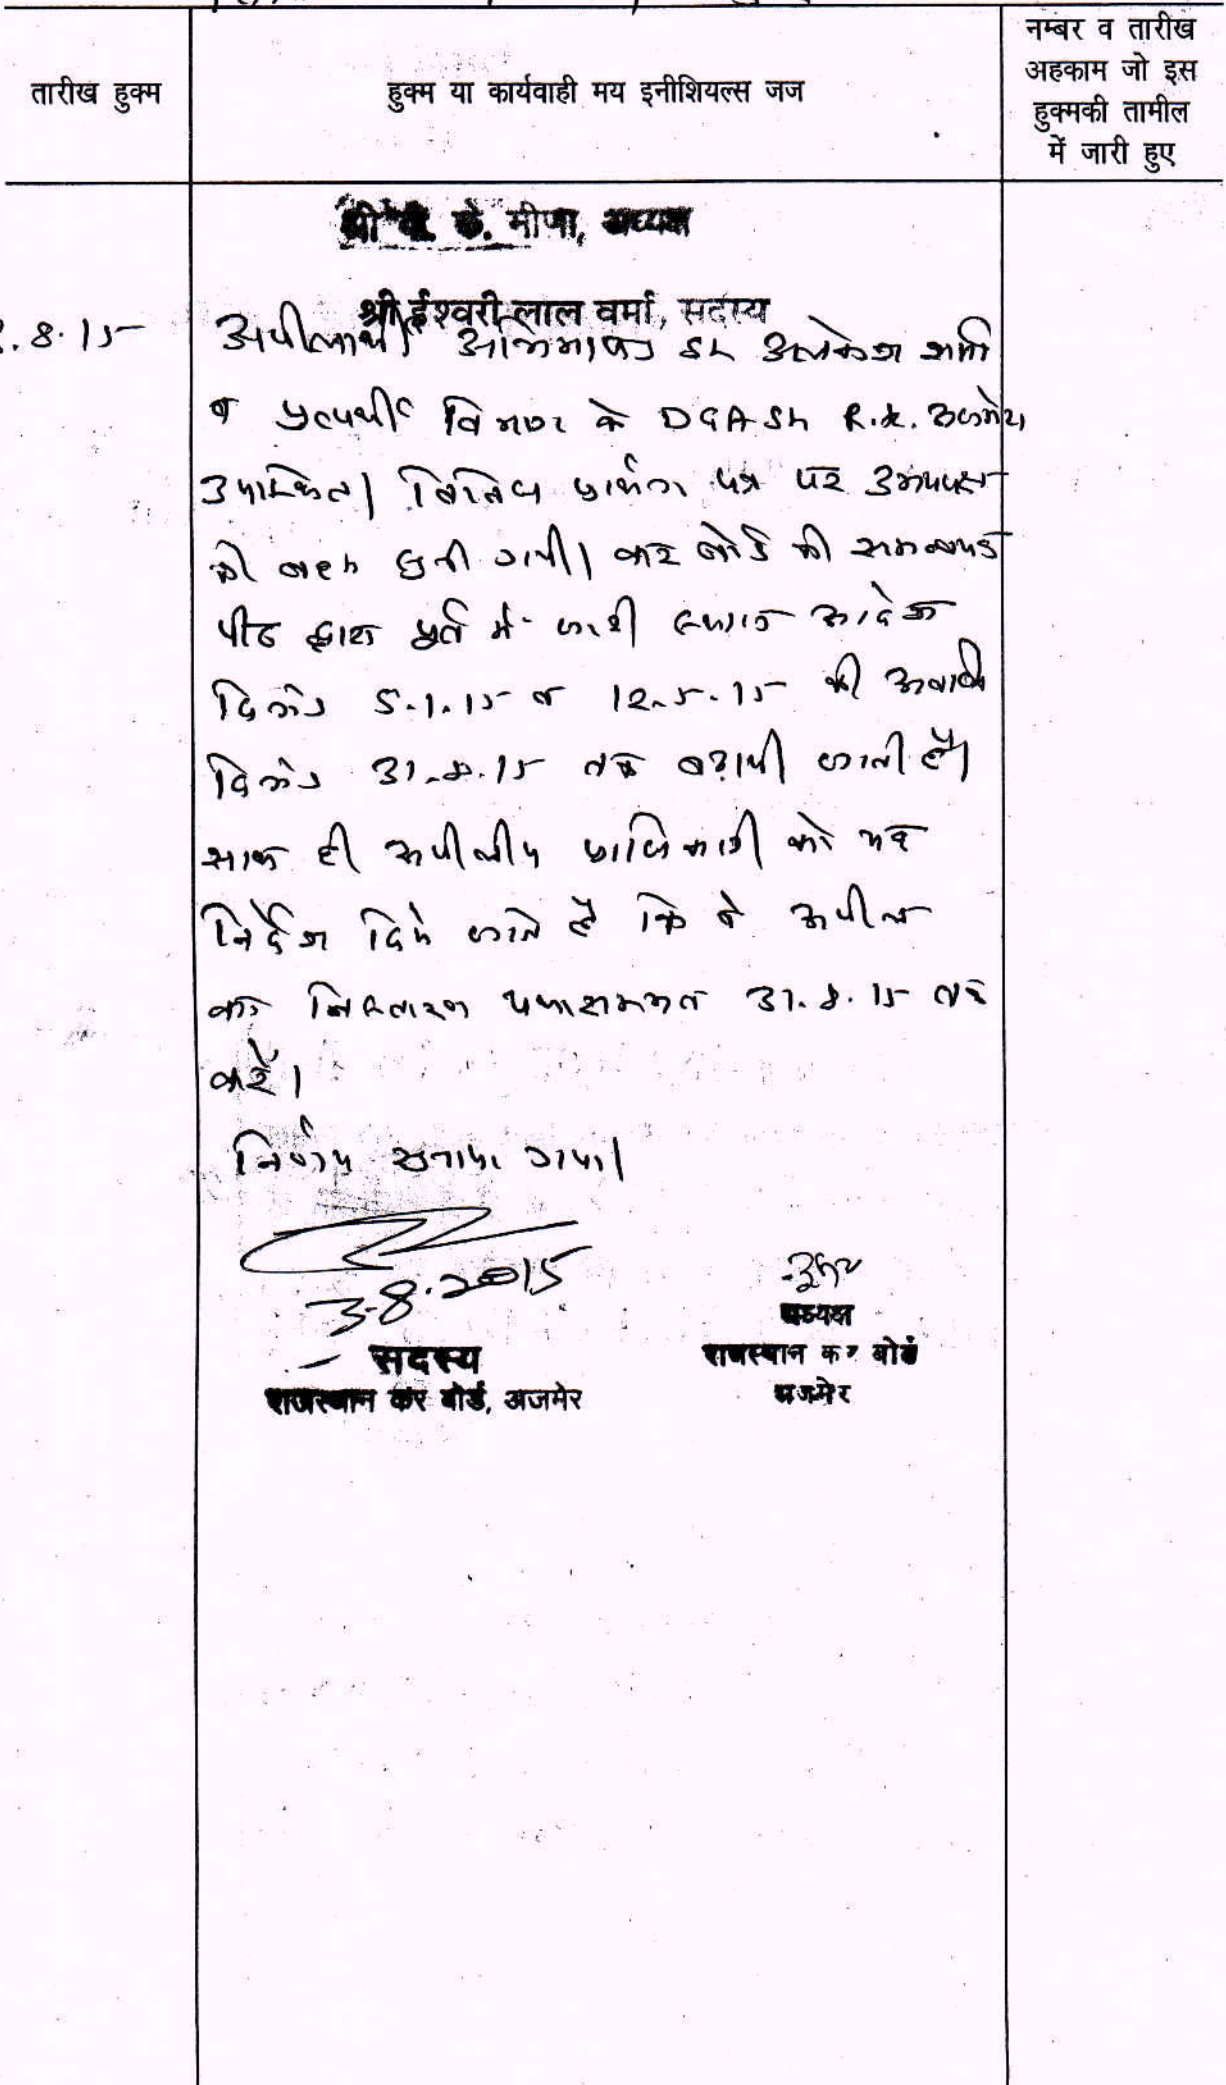 तारीख हुक्म
हुक्म या कार्यवाही मय इनीशियल्स जज
नम्बर व तारीख
अहकाम जो इस
हुक्मकी तामील
में जारी हुए
श्री के. मीणा, अध्यक्ष
श्री ईश्वरी लाल वर्मा, सदस्य
.8.15
अपीलार्थी अभिभाषक Sh अलकेश शर्मा
व प्रत्यर्थी विभाग के DGA Sh R.K. अजमेरा
उपस्थित। विविध प्रार्थना पत्र पर उभयपक्ष
की बहस सुनी गयी। कर बोर्ड की समन्वयपीठ
पीठ द्वारा पूर्व में जारी स्थगन आदेश
दिनांक 5.1.15 व 12.5.15 की अवधि
दिनांक 31.8.15 तक बढ़ायी जाती है।
साथ ही अपीलीय प्राधिकारी को यह
निर्देश दिये जाते है कि वे अपील
का निस्तारण यथासम्भव 31.8.15 तक
करें।
निर्णय सुनाया गया।
3-8-2015
सदस्य
राजस्थान कर बोर्ड, अजमेर
अध्यक्ष
राजस्थान कर बोर्ड
अजमेर